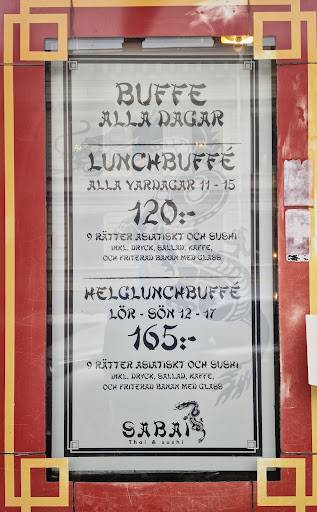 BUFFE
ALLA DAGAR
LUNCHBUFFÉ
ALLA VARDAGAR 11 - 15
120:-
9 RÄTTER ASIATISKT OCH SUSHI
INKL. DRYCK, SALLAD, KAFFE,
OCH FRITERAD BANAN MED GLASS
HELGLUNCHBUFFÉ
LÖR - SÖN 12 - 17
165:-
9 RÄTTER ASIATISKT OCH SUSHI
INKL. DRYCK, SALLAD, KAFFE,
OCH FRITERAD BANAN MED GLASS
SABAI
Thai & sushi